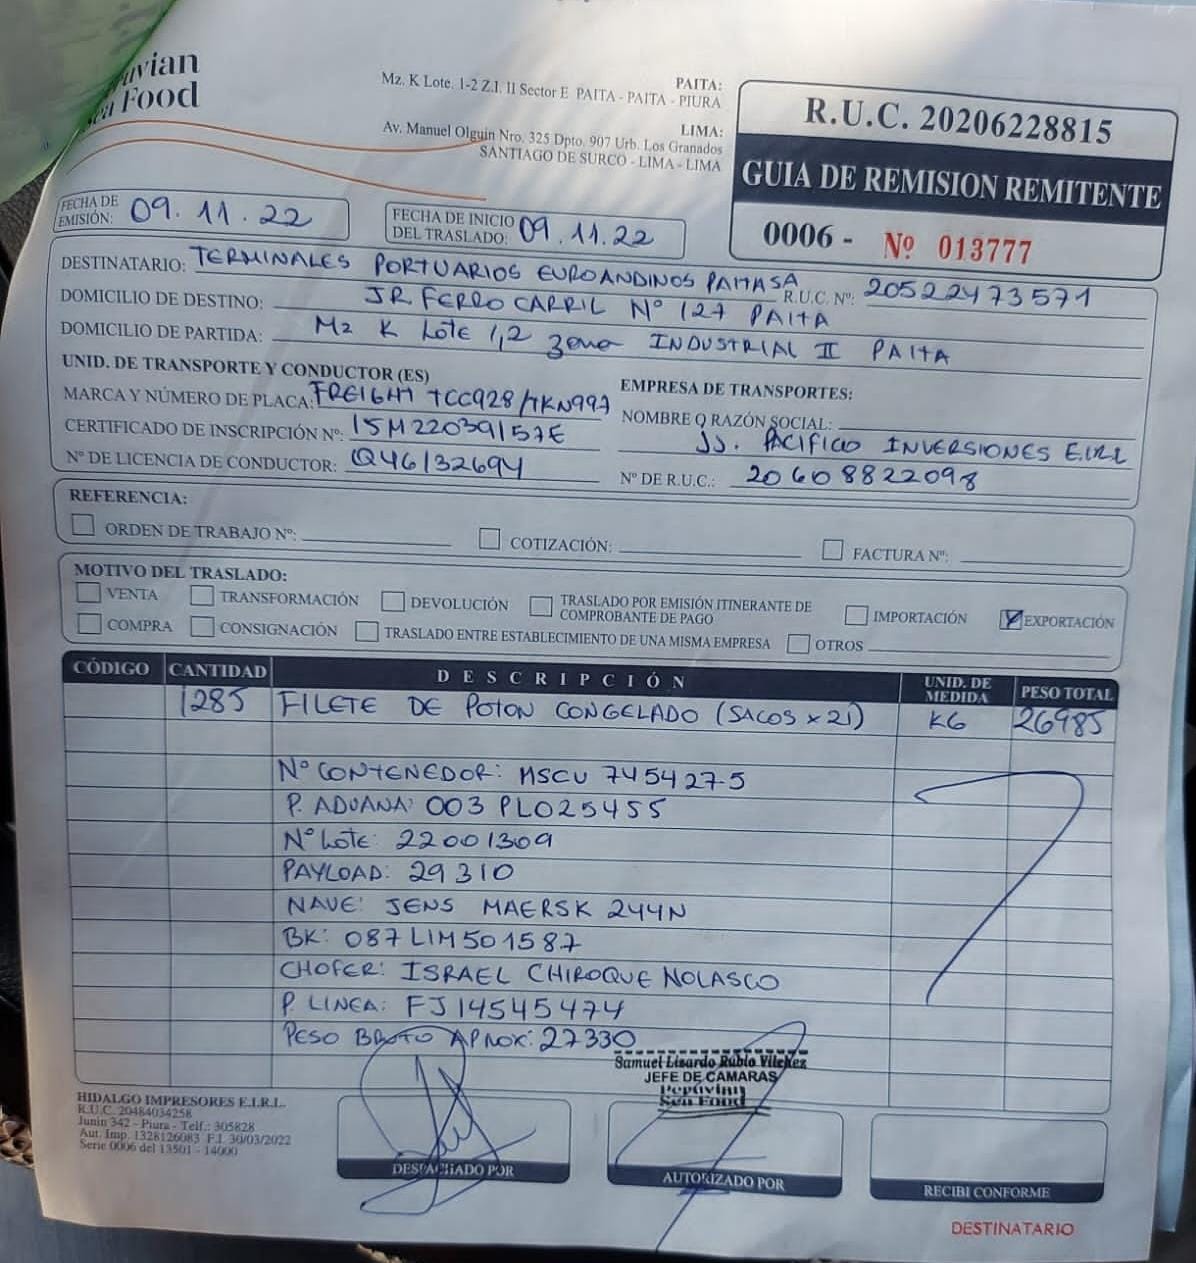 uvian
Sea Food
PAITA:
Mz. K Lote. 1-2 Z.I. II Sector E PAITA - PAITA - PIURA
LIMA:
Av. Manuel Olguin Nro. 325 Dpto. 907 Urb. Los Granados
SANTIAGO DE SURCO - LIMA - LIMA
R.U.C. 20206228815
GUIA DE REMISION REMITENTE
0006 - Nº 013777
FECHA DE EMISIÓN: 09.11.22
FECHA DE INICIO DEL TRASLADO: 09.11.22
DESTINATARIO: TERMINALES PORTUARIOS EUROANDINOS PAITA SA R.U.C. Nº: 20522473571
DOMICILIO DE DESTINO: JR FERROCARRIL Nº 127 PAITA
DOMICILIO DE PARTIDA: Mz K Lote 1,2 zona INDUSTRIAL II PAITA
UNID. DE TRANSPORTE Y CONDUCTOR (ES)
MARCA Y NÚMERO DE PLACA: FREIGHT TCC928/TKN997
CERTIFICADO DE INSCRIPCIÓN Nº: 15M22039157E
Nº DE LICENCIA DE CONDUCTOR: Q46132694
EMPRESA DE TRANSPORTES:
NOMBRE O RAZÓN SOCIAL:
JJ. PACIFICO INVERSIONES E.I.R.L
Nº DE R.U.C.: 20608822098
REFERENCIA:
ORDEN DE TRABAJO Nº: COTIZACIÓN: FACTURA Nº:
MOTIVO DEL TRASLADO:
VENTA TRANSFORMACIÓN DEVOLUCIÓN TRASLADO POR EMISIÓN ITINERANTE DE COMPROBANTE DE PAGO IMPORTACIÓN EXPORTACIÓN
COMPRA CONSIGNACIÓN TRASLADO ENTRE ESTABLECIMIENTO DE UNA MISMA EMPRESA OTROS
CÓDIGO CANTIDAD DESCRIPCIÓN UNID. DE MEDIDA PESO TOTAL
1285 FILETE DE POTON CONGELADO (SACOS x 21) KG 26985
Nº CONTENEDOR: MSCU 745427-5
P. ADUANA: 003 PL025455
Nº Lote: 22001309
PAYLOAD: 29310
NAVE: JENS MAERSK 244N
BK: 087LIM501587
CHOFER: ISRAEL CHIROQUE NOLASCO
P. LINEA: FJ14545474
PESO BRUTO APROX: 27330
Samuel Lisardo Rubio Vilchez
JEFE DE CAMARAS
Peruvian
Sea Food
HIDALGO IMPRESORES E.I.R.L.
R.U.C. 20484034258
Junin 342 - Piura - Telf.: 305828
Aut. Imp. 1328126083 F.I. 30/03/2022
Serie 0006 del 13501 - 14000
DESPACHADO POR
AUTORIZADO POR
RECIBI CONFORME
DESTINATARIO